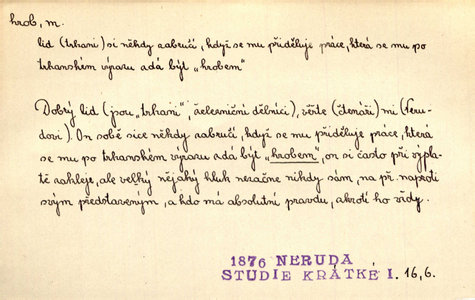 hrob, m.
lid (trhani) si někdy zabručí, když se mu přiděluje práce, která se mu po
trhanském výrazu zdá být „hrobem"
Dobrý lid (jsou „trhani", železniční dělníci), věřte (čtenáři) mi (Neru-
dovi). On sobě sice někdy zabručí, když se mu přiděluje práce, která
se mu po trhanském výrazu zdá být „hrobem", on si často při výpla-
tě zakleje, ale velký nějaký hluk nezačne nikdy sám, na př. naproti
svým představeným, a kdo má absolutní pravdu, zkrotí ho vždy.
1876 NERUDA
STUDIE KRÁTKÉ I. 16,6.